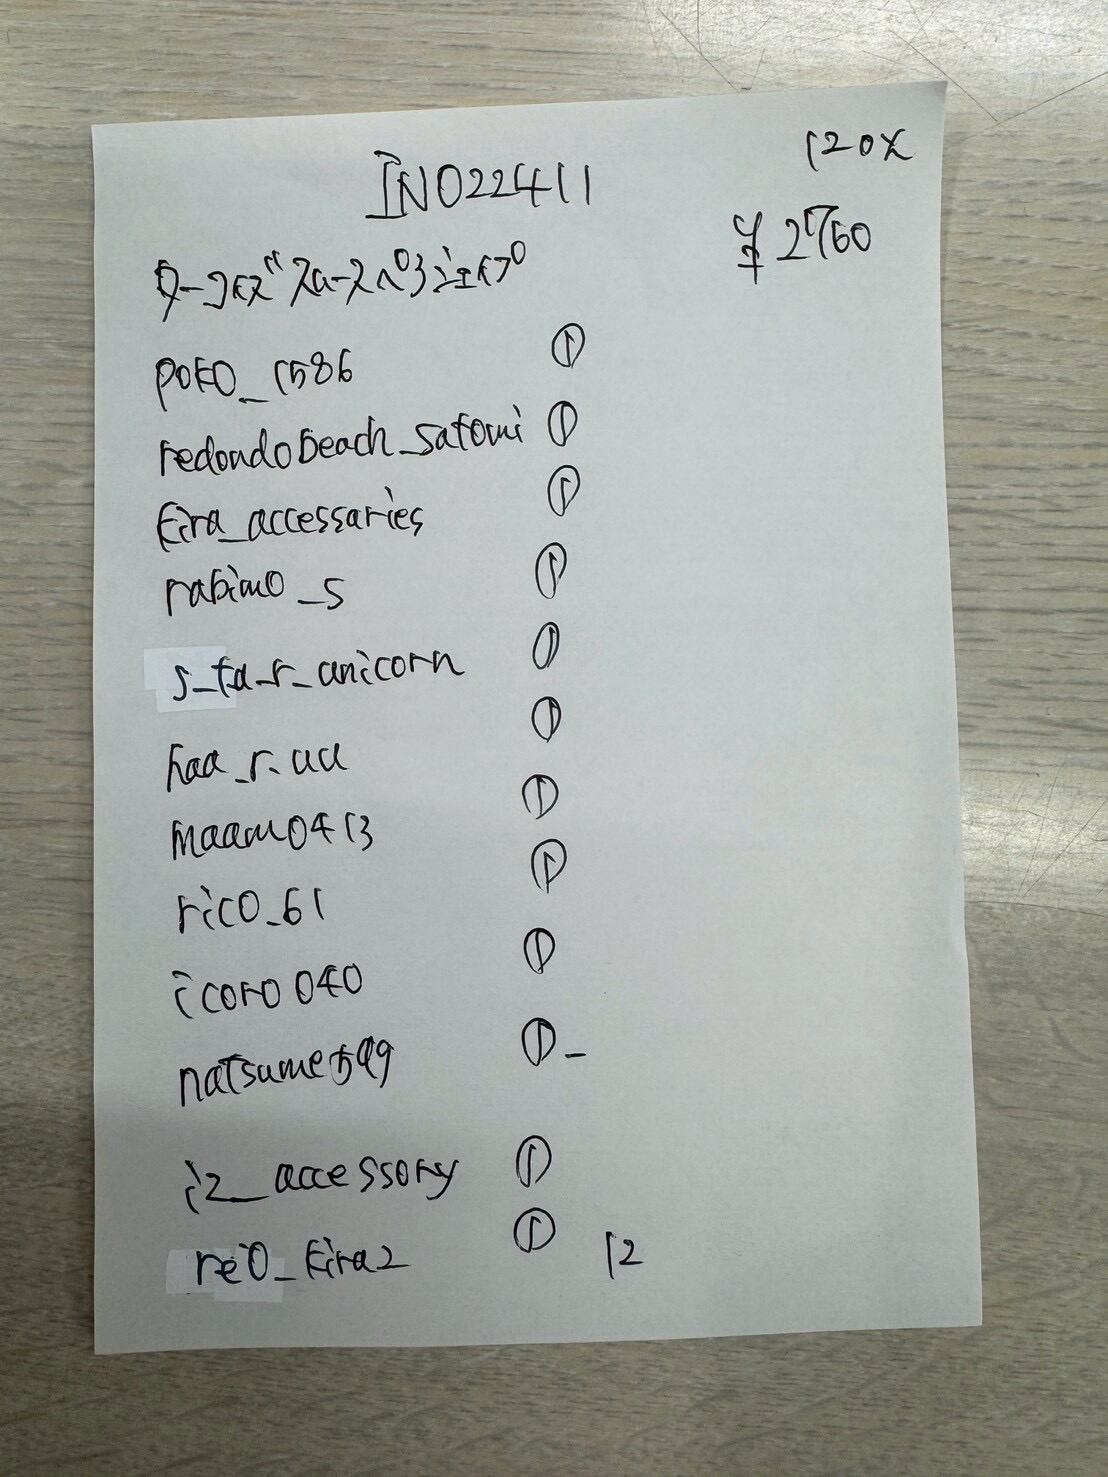 IN022411
120X
¥2760
poko_1586 ①
redondobeach_satomi ①
kira_accessaries ①
rabimo_s ①
s_ta_r_unicorn ①
haa_r.uu ①
maam0413 ①
rico_61 ①
icoro040 ①
natsume599 ①-
iz_accessory ①
rei0_kira2 ① 12